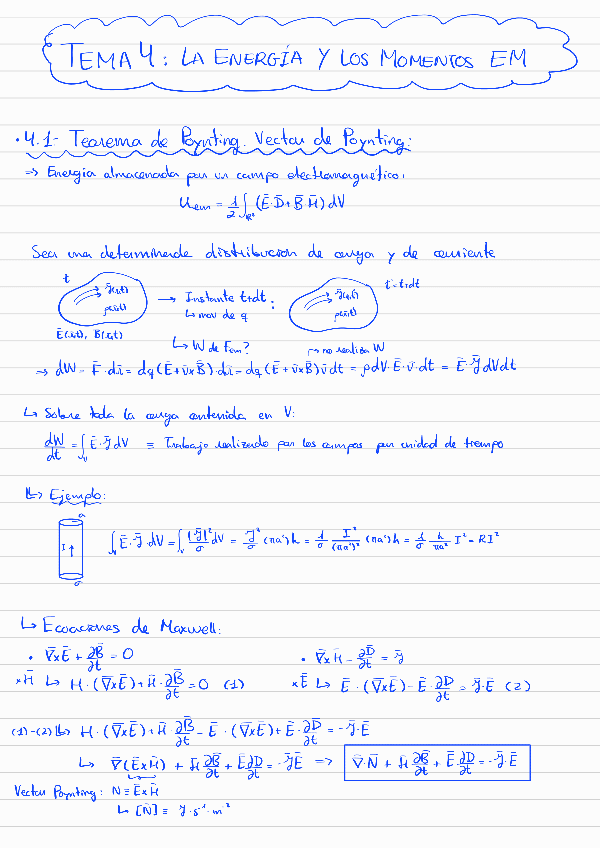 TEMA 4: LA ENERGÍA Y LOS MOMENTOS EM
• 4.1- Teorema de Poynting. Vector de Poynting:
⇒ Energía almacenada por un campo electromagnético:
U_em = 1/2 ∫_R³ (Ē·D̄ + B̄·H̄) dV
Sea una determinada distribución de carga y de corriente
t
J̄(r̄,t)
ρ(r̄,t)
Ē(r̄,t), B̄(r̄,t)
→ Instante t+dt :
↳ mov de q
J̄(r̄,t')
ρ(r̄,t')
t' = t+dt
↳ W de Fem?
no realiza W
→ dW = F̄·dr̄ = dq(Ē + v̄×B̄)·dr̄ = dq(Ē + v̄×B̄)v̄dt = ρdV·Ē·v̄·dt = Ē·J̄ dVdt
↳ Sobre toda la carga contenida en V:
dW/dt = ∫_V Ē·J̄ dV ≡ Trabajo realizado por los campos por unidad de tiempo
↳ Ejemplo:
a
I ↑
σ
∫_V Ē·J̄ dV = ∫_V |J̄|²/σ dV = J²/σ (πa²)h = 1/σ I²/(πa²)² (πa²)h = 1/σ h/πa² I² = RI²
↳ Ecuaciones de Maxwell:
• ∇̄×Ē + ∂B̄/∂t = 0
• ∇̄×H̄ - ∂D̄/∂t = J̄
×H̄ ↳ H·(∇̄×Ē) + H̄·∂B̄/∂t = 0 (1)
×Ē ↳ Ē·(∇̄×Ē) - Ē·∂D/∂t = J̄·Ē (2)
(1)-(2) ↳ H·(∇̄×Ē) + H̄·∂B̄/∂t - Ē·(∇̄×Ē) + Ē·∂D̄/∂t = -J̄·Ē
↳ ∇̄(Ē×H̄) + H̄∂B̄/∂t + Ē∂D̄/∂t = -J̄Ē ⇒ ∇̄·N̄ + H̄∂B̄/∂t + Ē·∂D̄/∂t = -J̄·Ē
Vector Poynting: N ≡ Ē×H̄
↳ [N̄] ≡ J·s⁻¹·m²